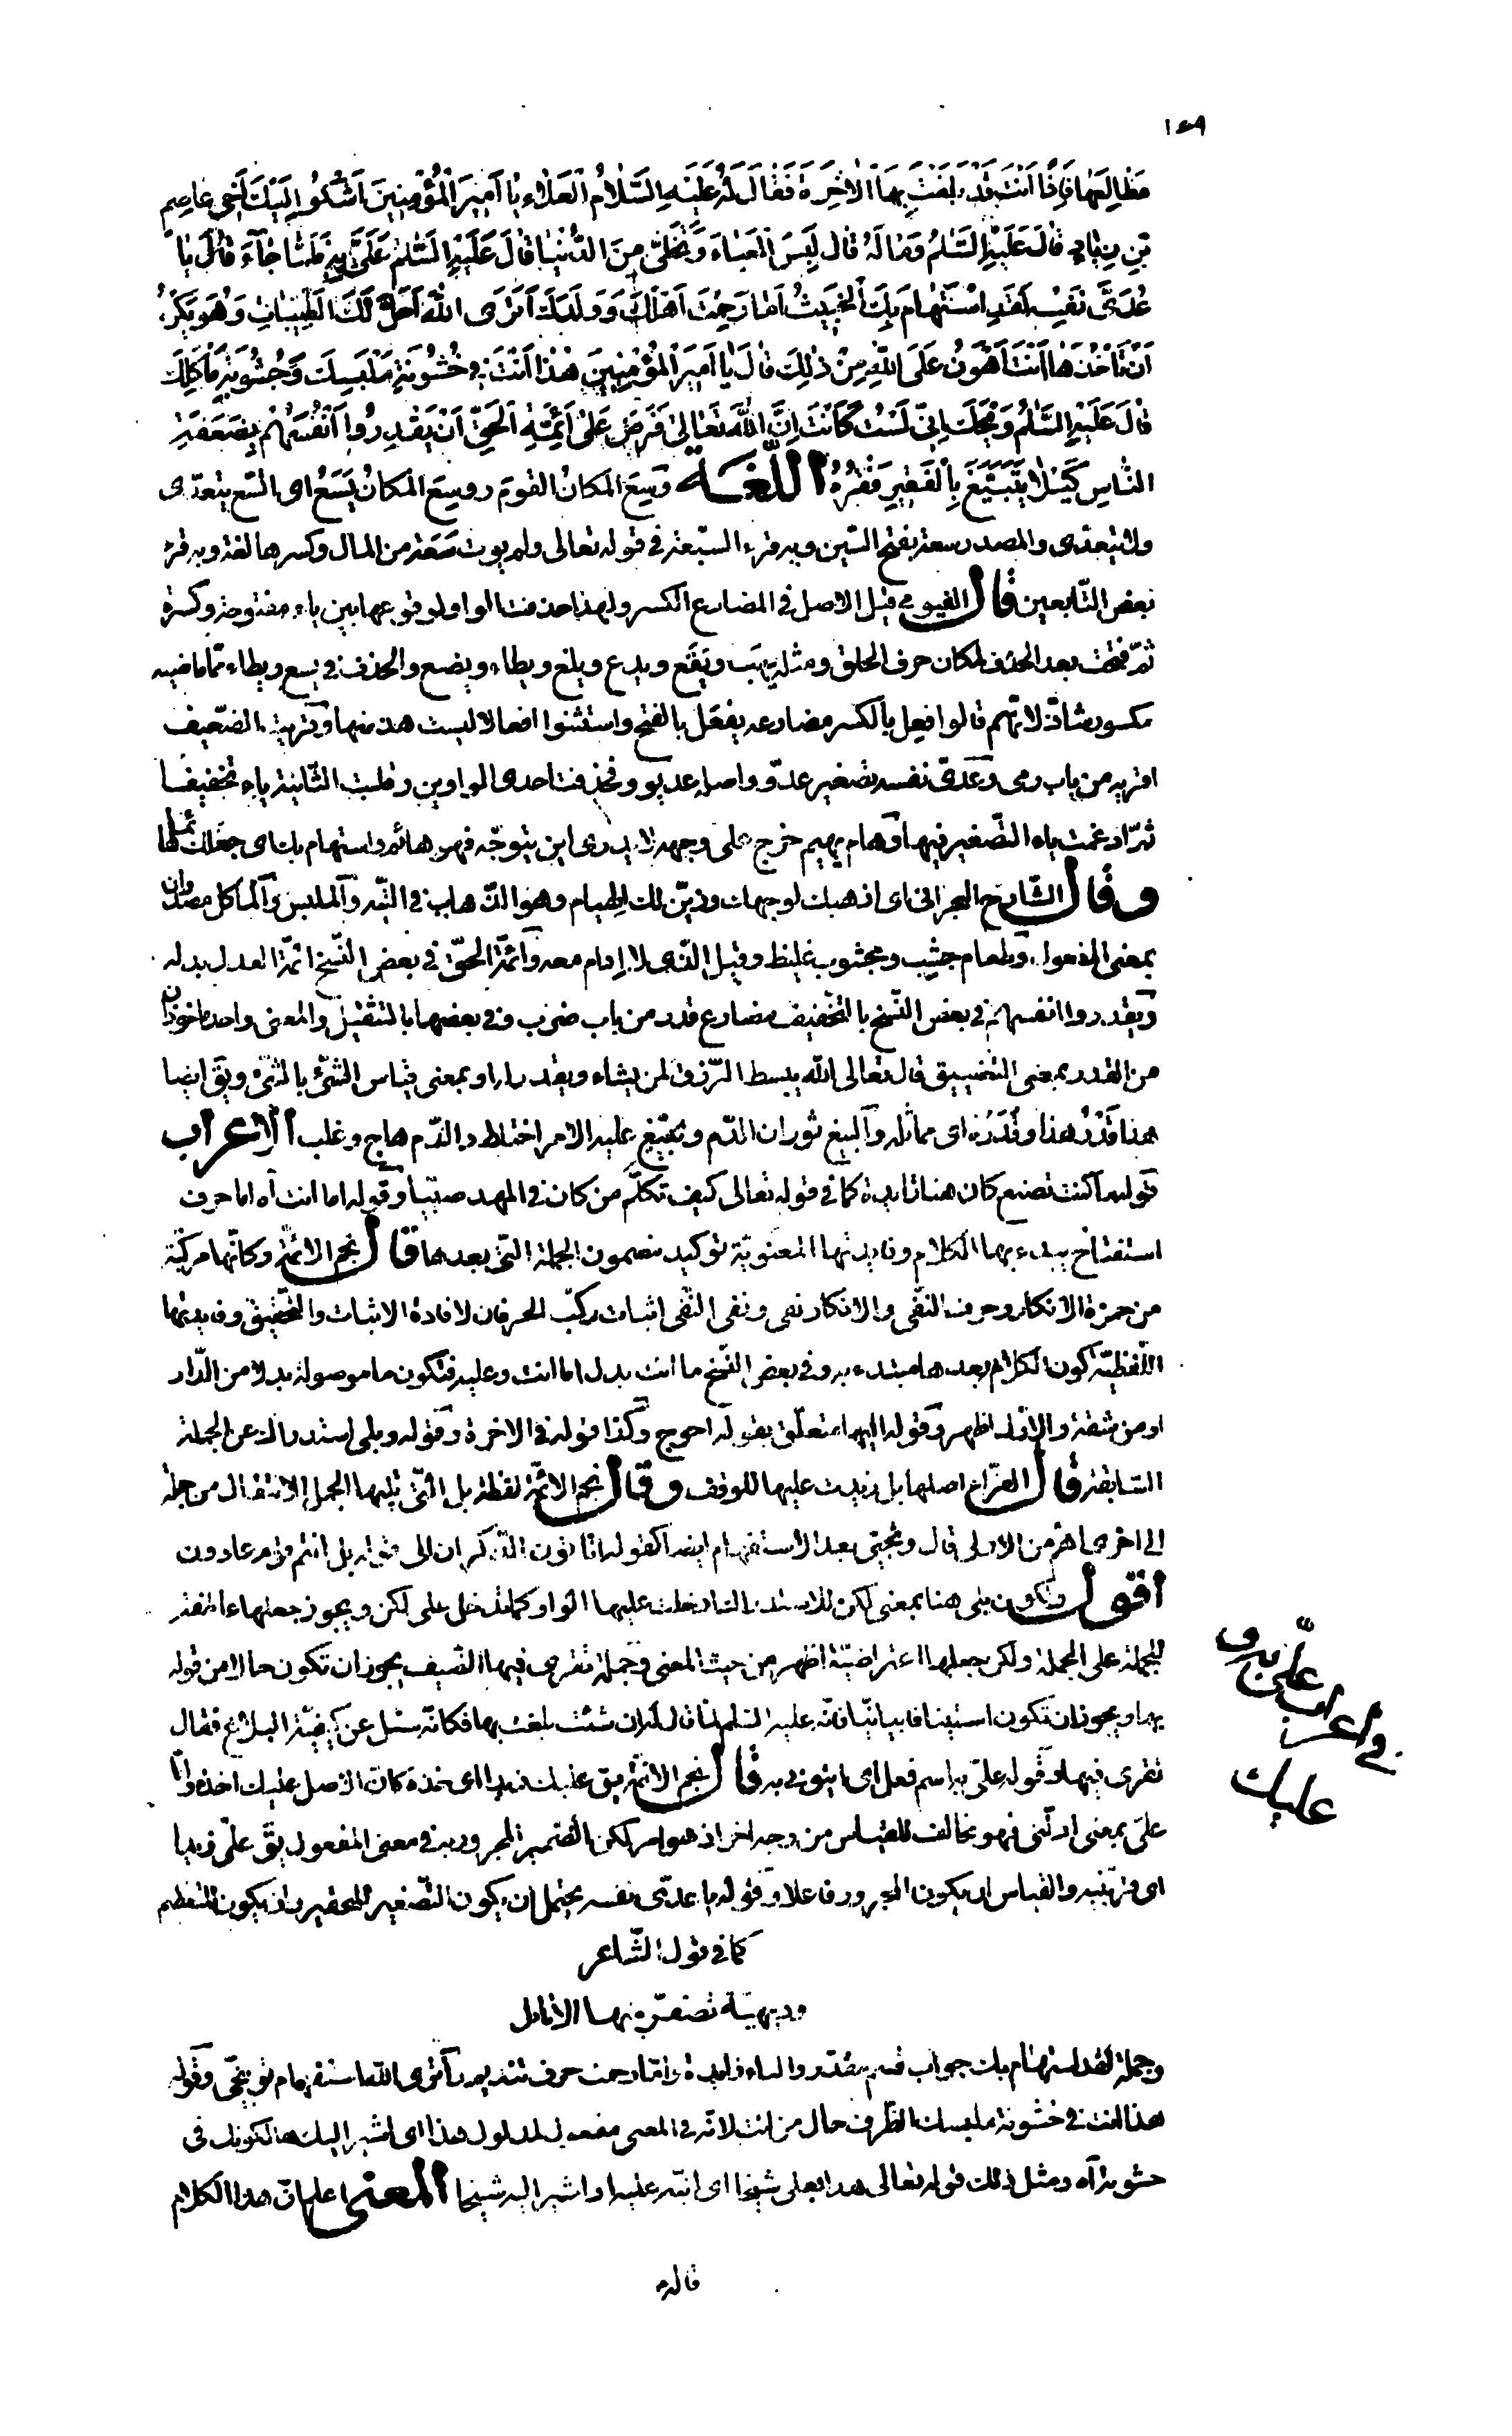 ١٤٩
مَطَالِعَهَا فَإِذًا أَنْتَ قَدْ بَلَغْتَ بِهَا الْآخِرَةَ فَقَالَ لَهُ عَلَيْهِ السَّلَامُ الْعَلَاءُ يَا أَمِيرَ الْمُؤْمِنِينَ أَشْكُو إِلَيْكَ أَخِي عَاصِمَ
بْنِ زِيَادٍ قَالَ عَلَيْهِ السَّلَامُ وَمَا لَهُ قَالَ لَبِسَ الْعَبَاءَ وَتَخَلَّى مِنَ الدُّنْيَا قَالَ عَلَيْهِ السَّلَامُ عَلَيَّ بِهِ فَلَمَّا جَاءَ قَالَ يَا
عُدَيَّ نَفْسِهِ لَقَدِ اسْتَهَامَ بِكَ الْخَبِيثُ أَمَا رَحِمْتَ أَهْلَكَ وَوَلَدَكَ أَتَرَى اللَّهَ أَحَلَّ لَكَ الطَّيِّبَاتِ وَهُوَ يَكْرَهُ
أَنْ تَأْخُذَهَا أَنْتَ أَهْوَنُ عَلَى اللَّهِ مِنْ ذٰلِكَ قَالَ يَا أَمِيرَ الْمُؤْمِنِينَ هٰذَا أَنْتَ فِي خُشُونَةِ مَلْبَسِكَ وَجُشُوبَةِ مَأْكَلِكَ
قَالَ عَلَيْهِ السَّلَامُ وَيْحَكَ إِنِّي لَسْتُ كَأَنْتَ إِنَّ اللَّهَ تَعَالَى فَرَضَ عَلَى أَئِمَّةِ الْحَقِّ أَنْ يَقْدِرُوا أَنْفُسَهُمْ بِضَعَفَةِ
النَّاسِ كَيْلَا يَتَبَيَّغَ بِالْفَقِيرِ فَقْرُهُ اللّغة وَسِعَ المكانُ القومَ ووسِعَ المكانُ يَسَعُ اى اتّسع يتعدّى
ولا يتعدّى والمصدر سعة بفتح السّين وبه قرء السّبعة في قوله تعالى ولم يوت سَعَة من المال وكسرها لغة وبه قرء
بعض التّابعين قال الفيومى قيل الاصل في المضارع الكسر ولهذا حذفت الواو لوقوعها بين ياء مفتوحة وكسرة
ثمّ فتحت بعد الحذف لمكان حرف الحلق ومثله يهَب ويَقَع ويدع ويلغ ويطاء ويضع والحذف في يسع ويطاء ممّا ماضيه
مكسور شاذّ لانّهم قالوا فعِل بالكسر مضارعه يفعَل بالفتح واستثنوا افعالا ليست هذه منها وقريت الضّيف
اقريه من باب رمى وعُدَىّ نفسه تصغير عدوّ واصله عديوو فحذفت احدى الواوين وقلبت الثّانية ياء تخفيفا
ثمّ ادغمت ياء التّصغير فيها وهام يهيم خرج على وجهه لا يدرى اين يتوجّه فهو هائم واستهام بك اى جعلك هائما
وقال الشّارح البحرانى اى اذهبك لوجهك وزيّن لك الهيام وهو الذّهاب في التّيه والملبس والمأكل مصدران
بمعنى المفعول، وطعام جشِب ومجشوب غليظ وقيل الّذى لا ادام معه وائمّة الحقّ في بعض النّسخ ائمّة العدل بدله
ويقدروا انفسهم في بعض النّسخ بالتّخفيف مضارع قدر من باب ضرب وفي بعضها بالتثقيل والمعنى واحد ماخوذان
من القدر بمعنى التضييق قال تعالى الله يبسط الرّزق لمن يشاء ويقدر له او بمعنى قياس الشّئ بالشّئ ويق ايضا
هذا قَدْرُ هذا وقَدَرُه اى مماثله والبيغ ثوران الدّم وتبيّغ عليه الامر اختلط والدّم هاج وغلب الاعراب
قوله ما كنت تصنع كان هنا زايدة كما في قوله تعالى كيف تكلّم من كان في المهد صبيّا وقوله اما انت اه اما حرف
استفتاح يبدء بها الكلام وفايدتها المعنويّة توكيد مضمون الجملة التى بعدها قال نجم الائمّة وكانّها مركّبة
من همزة الانكار وحرف النّفى والانكار نفى ونفى النّفى اثبات ركّب الحرفان لافادة الاثبات والتحقيق وفايدتها
اللّفظيّة كون الكلام بعدها مبتدء به وفي بعض النّسخ ما انت بدل اما انت وعليه فتكون ما موصولة بدلا من الدّار
او من سعة والاوّل اظهر وقوله اليها متعلّق بقوله احوج وكذا قوله في الاخرة وقوله وبلى استدراك عن الجملة
السّابقة قال الفرّاء اصلها بل زيدت عليها للوقف وقال نجم الائمّة لفظة بل الّتى تليها الجمل الانتقال من جملة
الى اخرى اهمّ من الاولى قال وتجئ بعد الاستفهام ايضا كقوله اتاتون الذّكران الى قوله بل انتم قوم عادون
اقول وتكون بلى هنا بمعنى لكن للاستدراك دخلت عليها الواو كما تدخل على لكن ويجوز جعلها عاطفة
للجملة على الجملة ولكن جعلها اعتراضيّة اظهر من حيث المعنى وجملة تقرى فيها الضّيف يجوز ان تكون حالا من قوله
بها ويجوز ان تكون استينافا بيانيّا فانّه عليه السّلم لمّا قال له ان شئت بلغت بها فكانّه سئل عن كيفيّة البلاغ فقال
تقرى فيها وقوله علىّ به اسم فعل اى ايتونى به قال نجم الائمّة يق عليك زيدا اى خذه كانّ الاصل عليك اخذه وامّا
علىّ بمعنى اولنى فهو مخالف للقياس من وجه اخر اذ هو امر لكن الضّمير المجرور به في معنى المفعول يق علىّ زيدا
اى قرّبنيه والقياس ان يكون المجرور فاعلا وقوله يا عدىّ نفسه يحتمل ان يكون التّصغير للتحقير وان يكون للتعظيم
كما في قول الشّاعر
دويهيّة تصفرّ منها الانامل
وجملة لقد استهام بك جواب قسم مقدّر والباء زايدة واما رحمت حرف تنديم وأترى الله استفهام توبيخىّ وقوله
هذا انت في خشونة ملبسك الظّرف حال من انت لانّه في المعنى مفعول لمدلول هذا اى اشير اليك حالكونك في
خشونة اه ومثل ذلك قوله تعالى هذا بعلى شيخا اى انبّه عليه او اشير اليه شيخا المعنى اعلم انّ هذا الكلام
في اعراب علىّ به وق
عليك
قاله